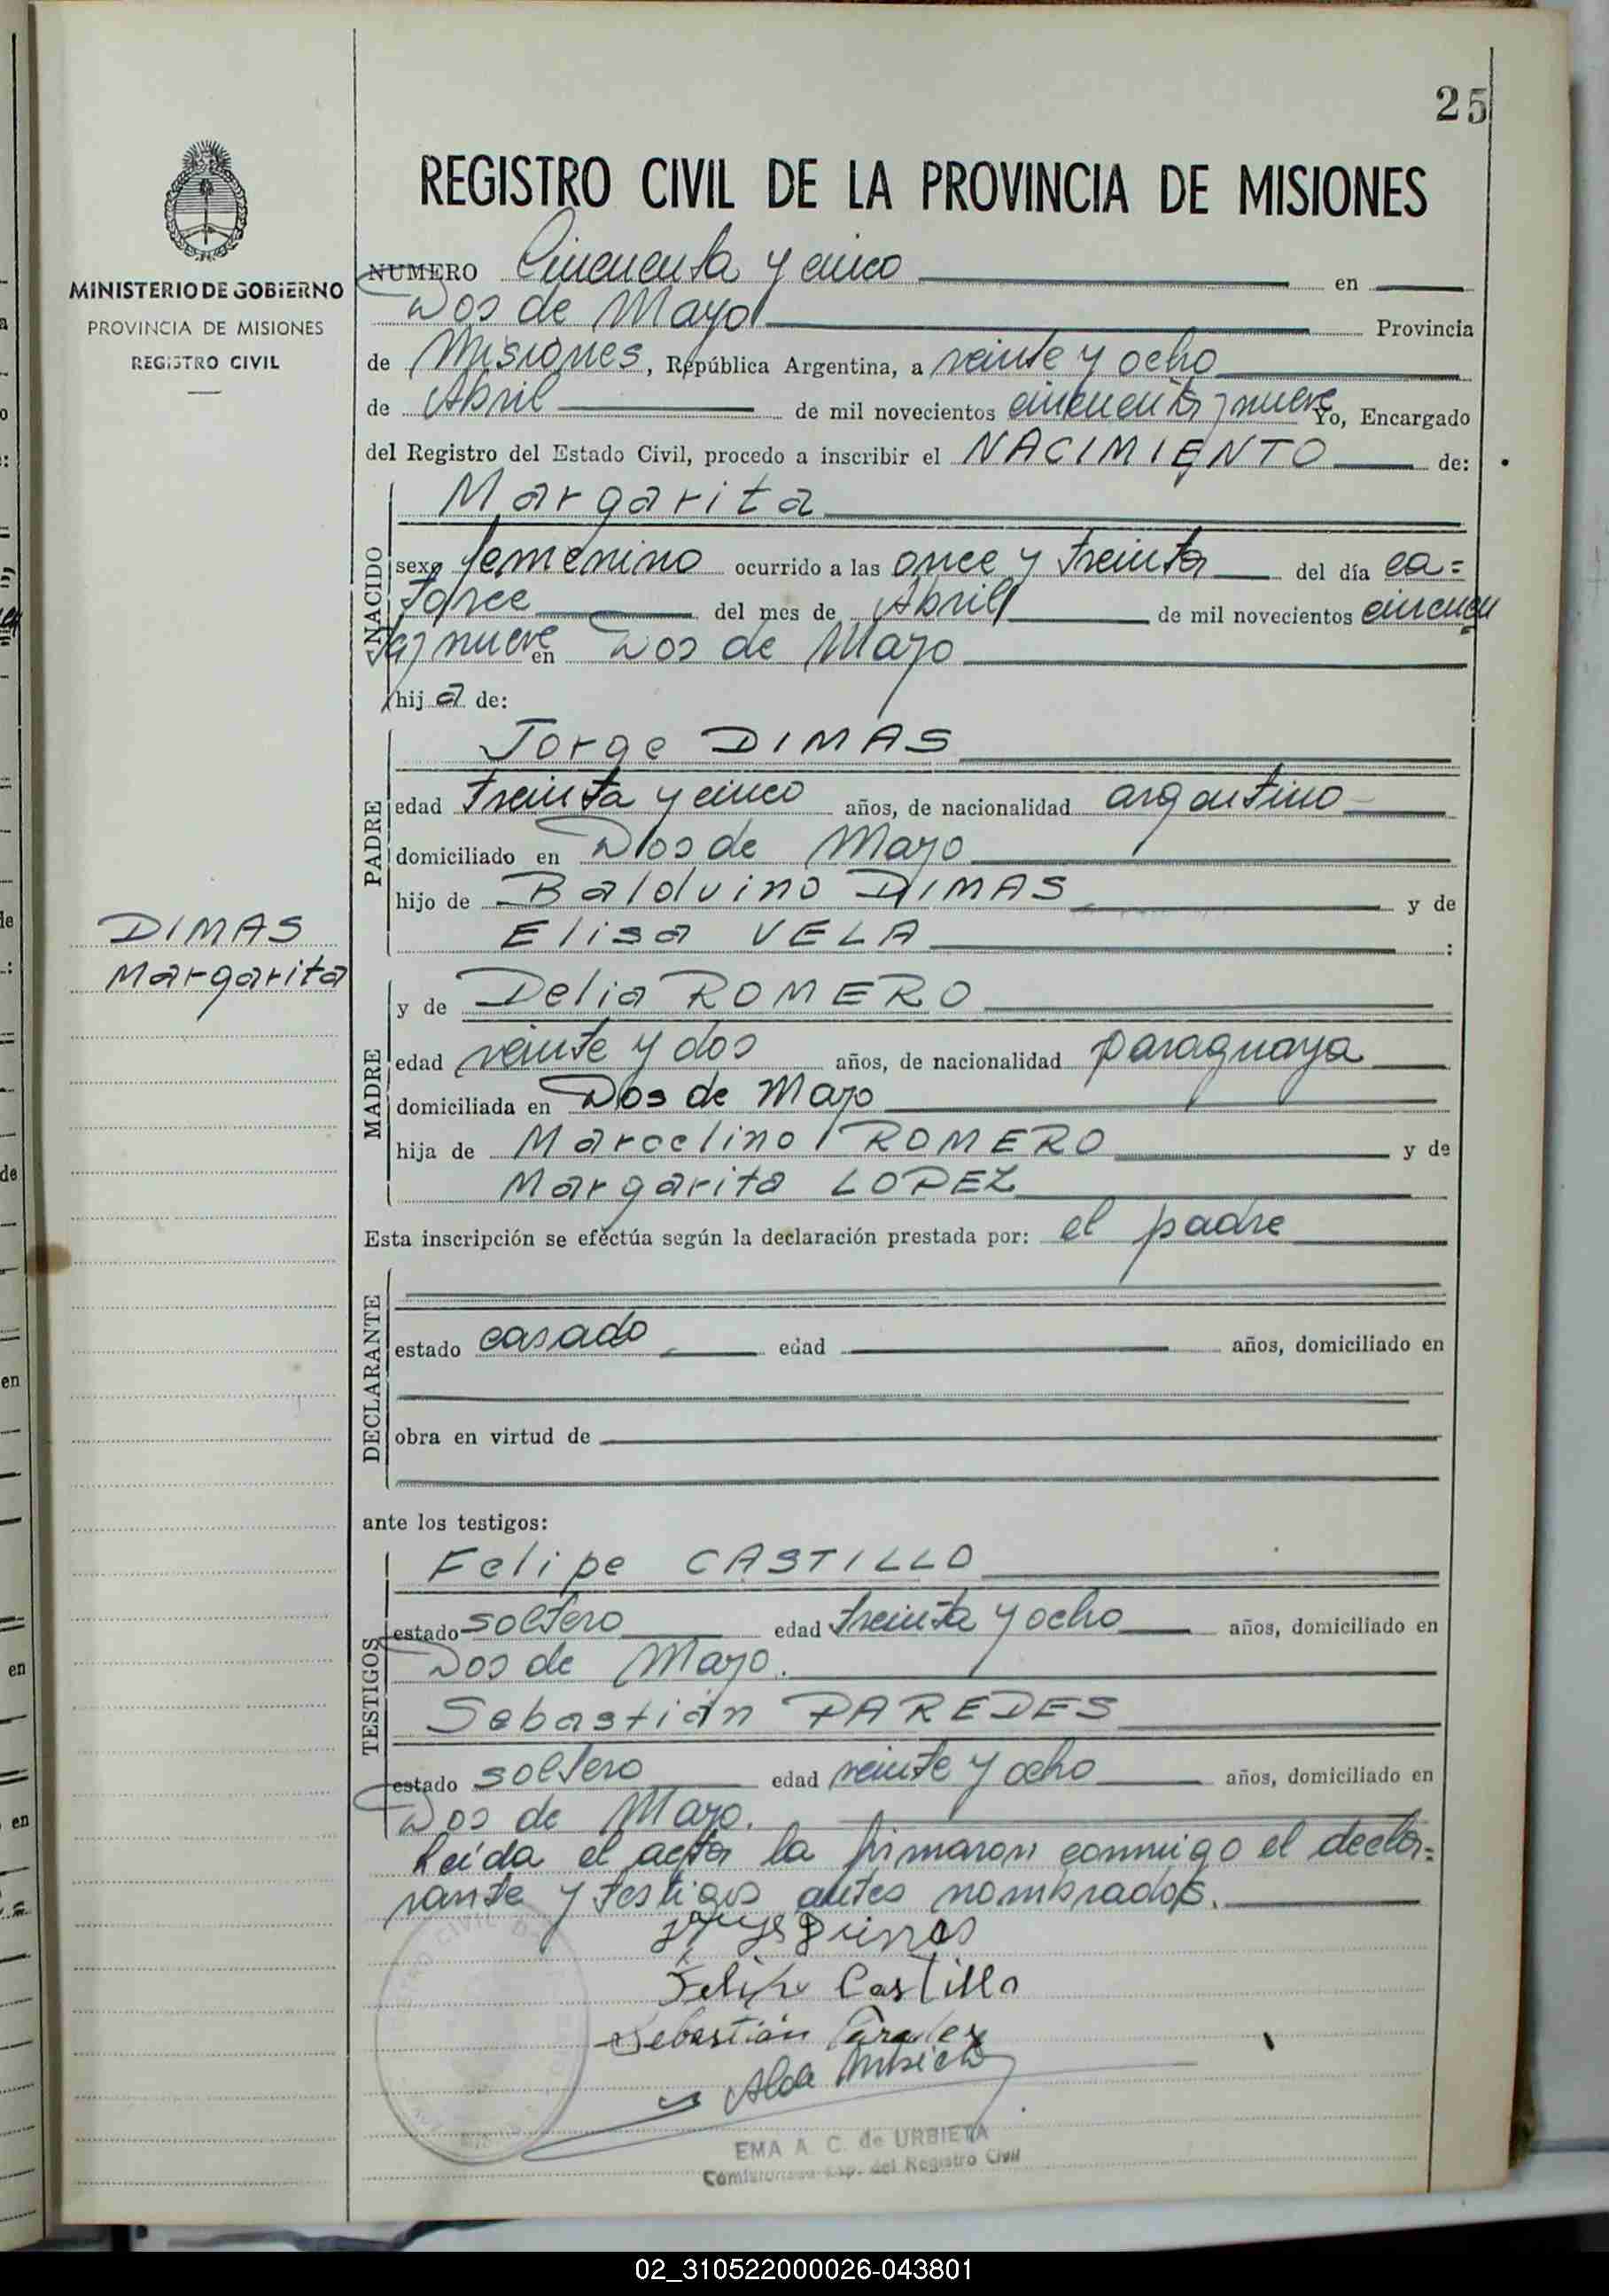 25
MINISTERIO DE GOBIERNO
PROVINCIA DE MISIONES
REGISTRO CIVIL
DIMAS
Margarita
REGISTRO CIVIL DE LA PROVINCIA DE MISIONES
NUMERO Cincuenta y cinco en
Dos de Mayo Provincia
de Misiones, República Argentina, a veinte y ocho
de Abril de mil novecientos cincuenta y nueve Yo, Encargado
del Registro del Estado Civil, procedo a inscribir el NACIMIENTO de:
NACIDO
Margarita
sexo femenino ocurrido a las once y treinta del día ca=
torce del mes de Abril de mil novecientos cincuen
ta y nueve en Dos de Mayo
hija de:
PADRE
Jorge DIMAS
edad treinta y cinco años, de nacionalidad argentino
domiciliado en Dos de Mayo
hijo de Balduino DIMAS y de
Elisa VELA :
MADRE
y de Delia ROMERO
edad veinte y dos años, de nacionalidad paraguaya
domiciliada en Dos de Mayo
hija de Marcelino ROMERO y de
Margarita LOPEZ
Esta inscripción se efectúa según la declaración prestada por: el padre
DECLARANTE
estado casado edad años, domiciliado en
obra en virtud de
ante los testigos:
TESTIGOS
Felipe CASTILLO
estado soltero edad treinta y ocho años, domiciliado en
Dos de Mayo.
Sebastián PAREDES
estado soltero edad veinte y ocho años, domiciliado en
Dos de Mayo.
Leída el acta la firmaron conmigo el decla=
rante y testigos antes nombrados.
Jorge Dimas
Felipe Castillo
Sebastián Paredes
EMA A. C. de URBIETA
del Registro Civil
02_310522000026-043801